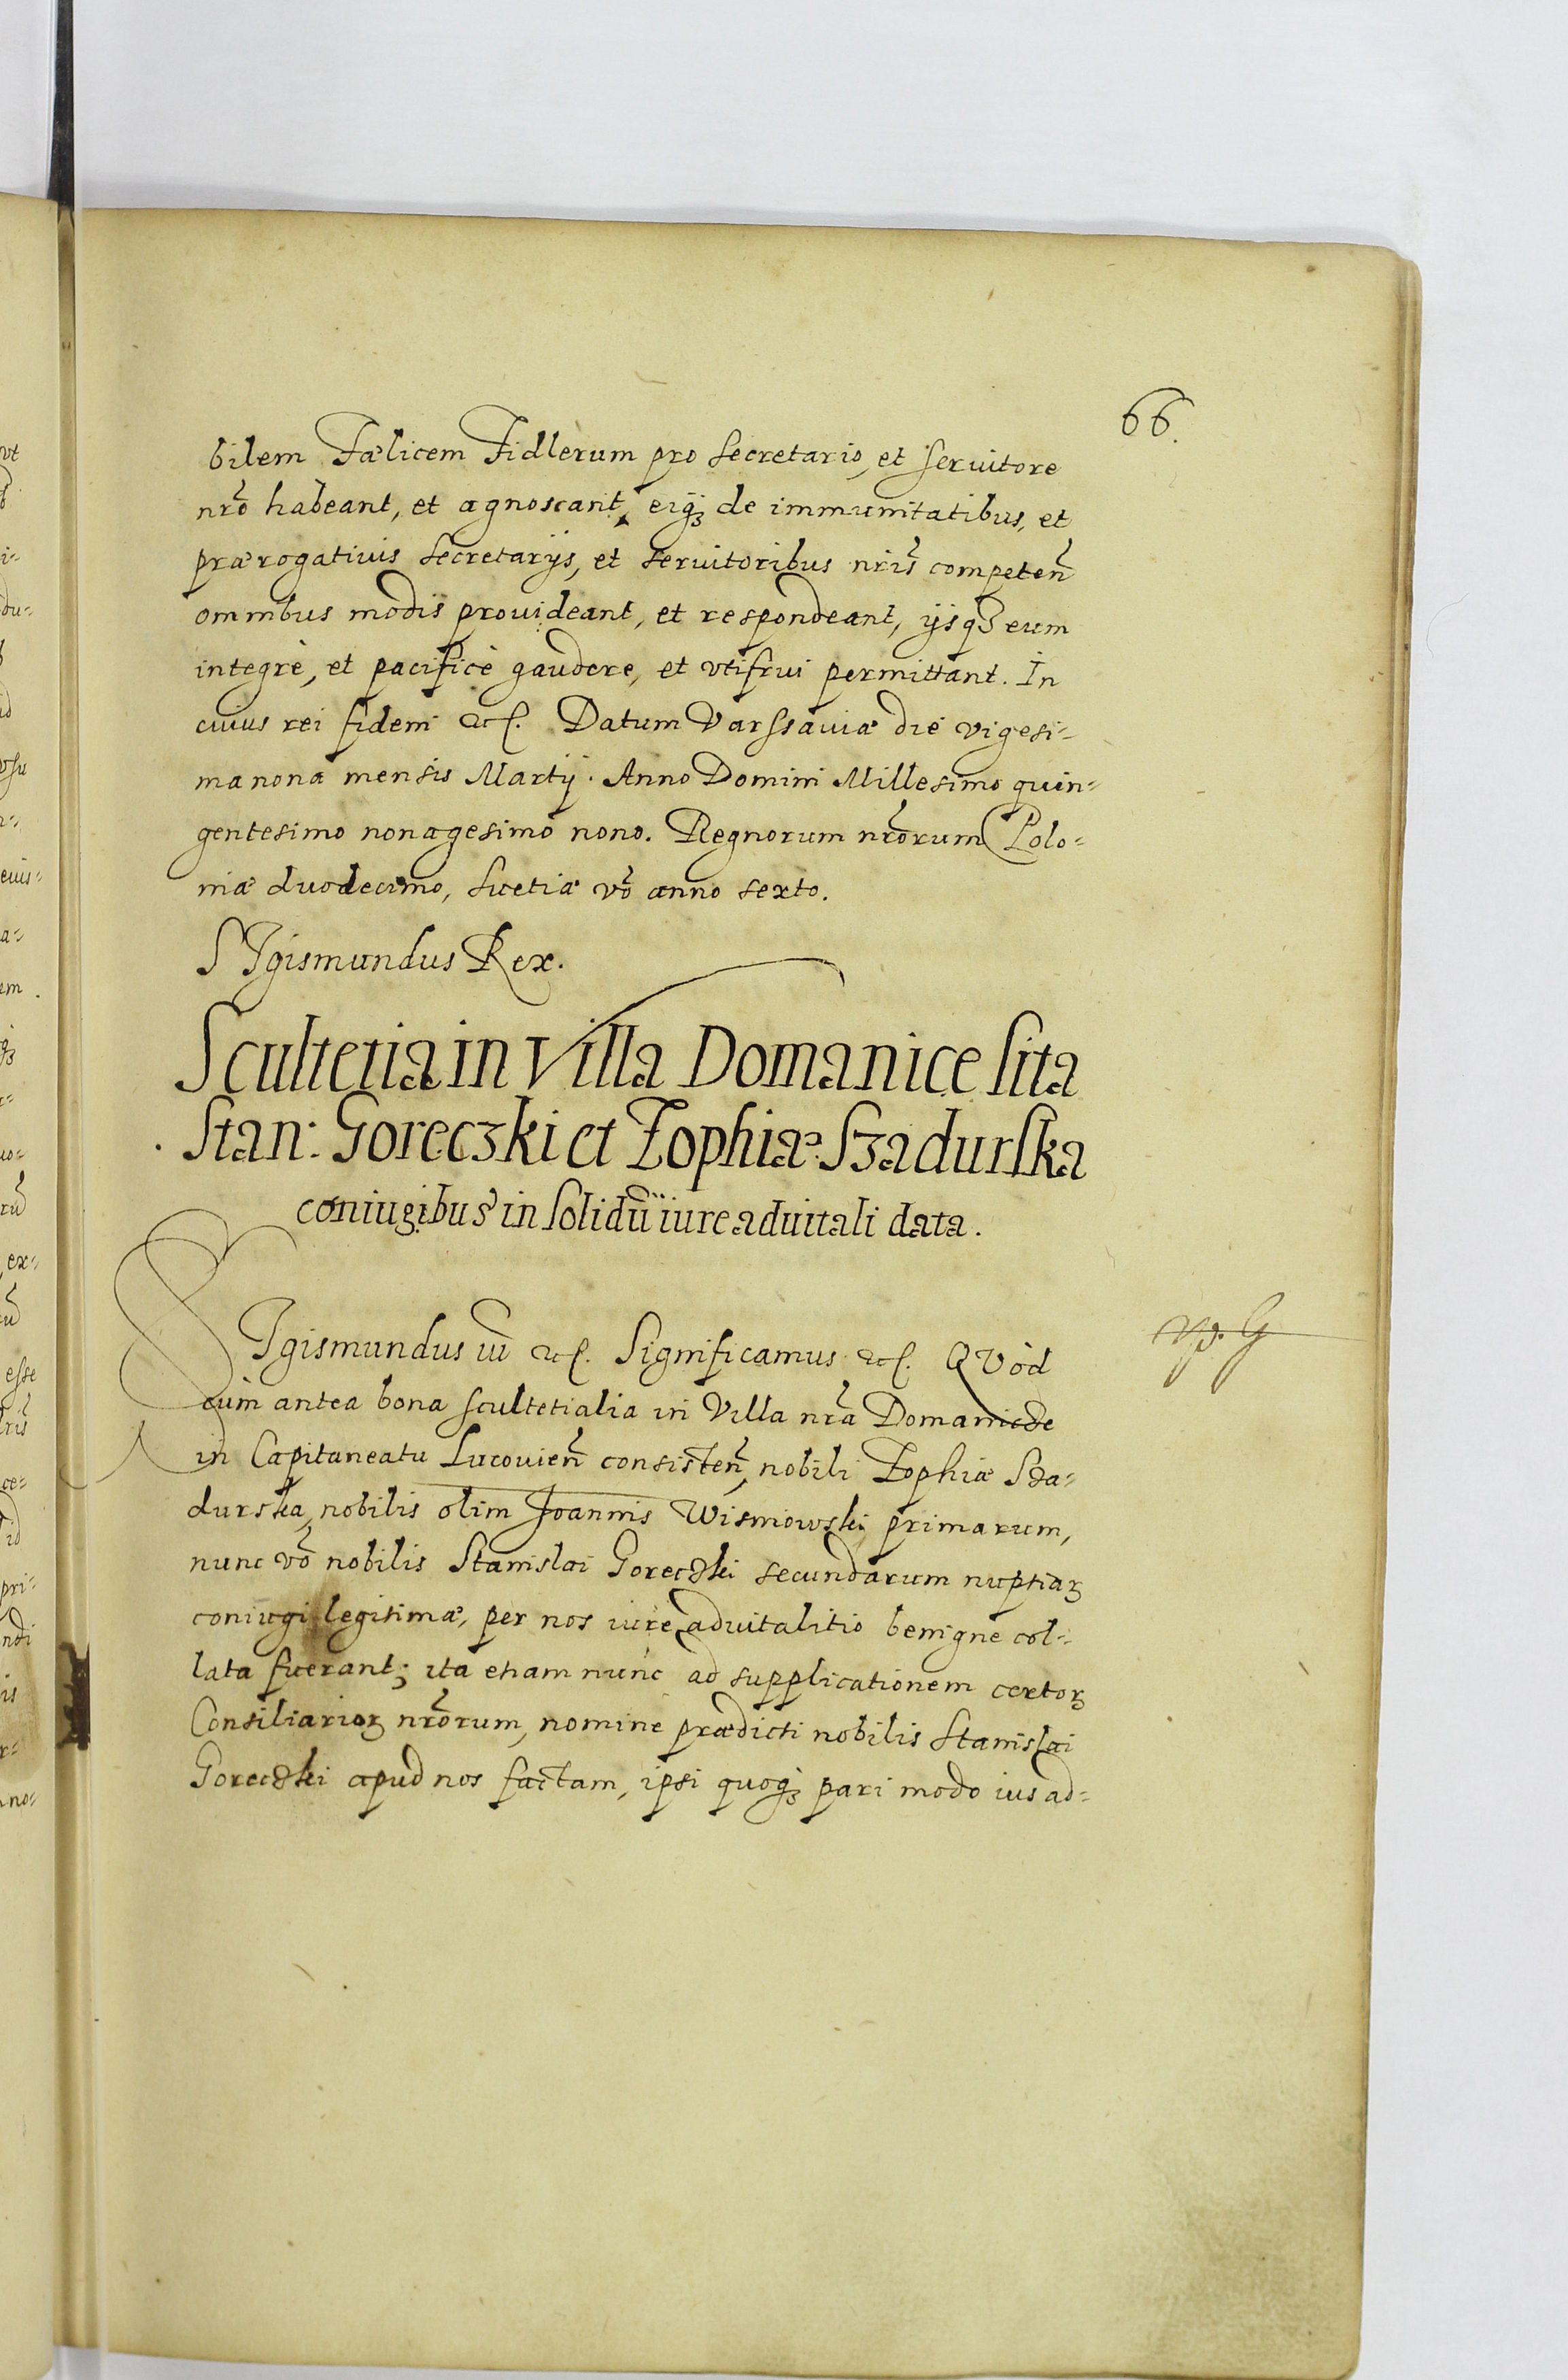 66.
bilem Fælicem Fidlerum pro secretario, et seruitore
nrō habeant, et agnoscant, eiqꝫ de immunitatibus, et
prærogatiuis secretarijs, et seruitoribus nrīs competen̄
omnibus modis prouideant, et respondeant, ijsqꝫ eum
integrè, et pacificè gaudere, et vtifrui permittant. In
cuius rei fidem etc. Datum Varssauiæ die vigesi-
ma nona mensis Martij. Anno Domini Millesimo quin-
gentesimo nonagesimo nono. Regnorum nrōrum Polo-
niæ duodecimo, Suetiæ vō anno sexto.
SIgismundus Rex.
Scultetia in Villa Domanice sita
Stan: Goreczki et Zophiæ Szadurska
coniugibus in solidū iure aduitali data.
SIgismundus iii etc. Significamus etc. QVòd
cùm antea bona scultetialia in Villa nrā Domanicze
in Capitaneatu Lucouien̄ consisten̄, nobili Zophiæ Sza-
durska, nobilis olim Joannis Wisniowski primarum,
nunc vō nobilis Stanislai Goreczki secundarum nuptiaꝝ
coniugi legitimæ, per nos iure aduitalitio benigne col-
lata fuerant; ita etiam nunc ad supplicationem certoꝝ
Consiliarioꝝ nrōrum, nomine prædicti nobilis Stanislai
Goreczki apud nos factam, ipsi quoqꝫ pari modo ius ad-